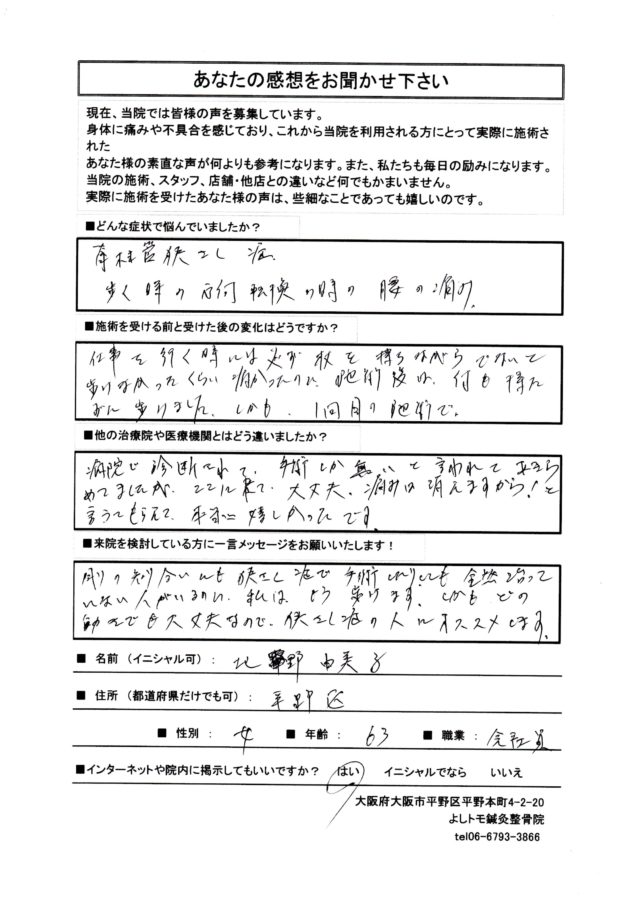 あなたの感想をお聞かせ下さい
現在、当院では皆様の声を募集しています。
身体に痛みや不具合を感じており、これから当院を利用される方にとって実際に施術さ
れた
あなた様の素直な声が何よりも参考になります。また、私たちも毎日の励みになります。
当院の施術、スタッフ、店舗・他店との違いなど何でもかまいません。
実際に施術を受けたあなた様の声は、些細なことであっても嬉しいのです。
■どんな症状で悩んでいましたか？
脊柱管狭さく症
歩く時の方向転換の時の腰の痛み。
■施術を受ける前と受けた後の変化はどうですか？
仕事を行く時には必ず杖を持ちながらでないで
歩けなかったくらい痛かったのに、施術後は、何も持た
ずに歩けました。しかも、1回目の施術で。
■他の治療院や医療機関とはどう違いましたか？
病院で診断されて、手術しか無いと言われてあきら
めてましたが、ここに来て、大丈夫、痛みは消えますから！と
言うてもらえて、本当に嬉しかったです。
■来院を検討している方に一言メッセージをお願いいたします！
周りの知り合いにも狭さく症で手術しても全然治って
いない人がいるのに、私は、もう歩けます。しかもどの
大丈夫なので、狭さく症の人にオススメします。
■ 名前（イニシャル可）： 北野 由美子
■ 住所（都道府県だけでも可）： 平野区
■ 性別： 女 ■ 年齢： 63 ■ 職業： 会社員
■インターネットや院内に掲示してもいいですか？ はい イニシャルでなら いいえ
大阪府大阪市平野区平野本町4-2-20
よしトモ鍼灸整骨院
tel06-6793-3866